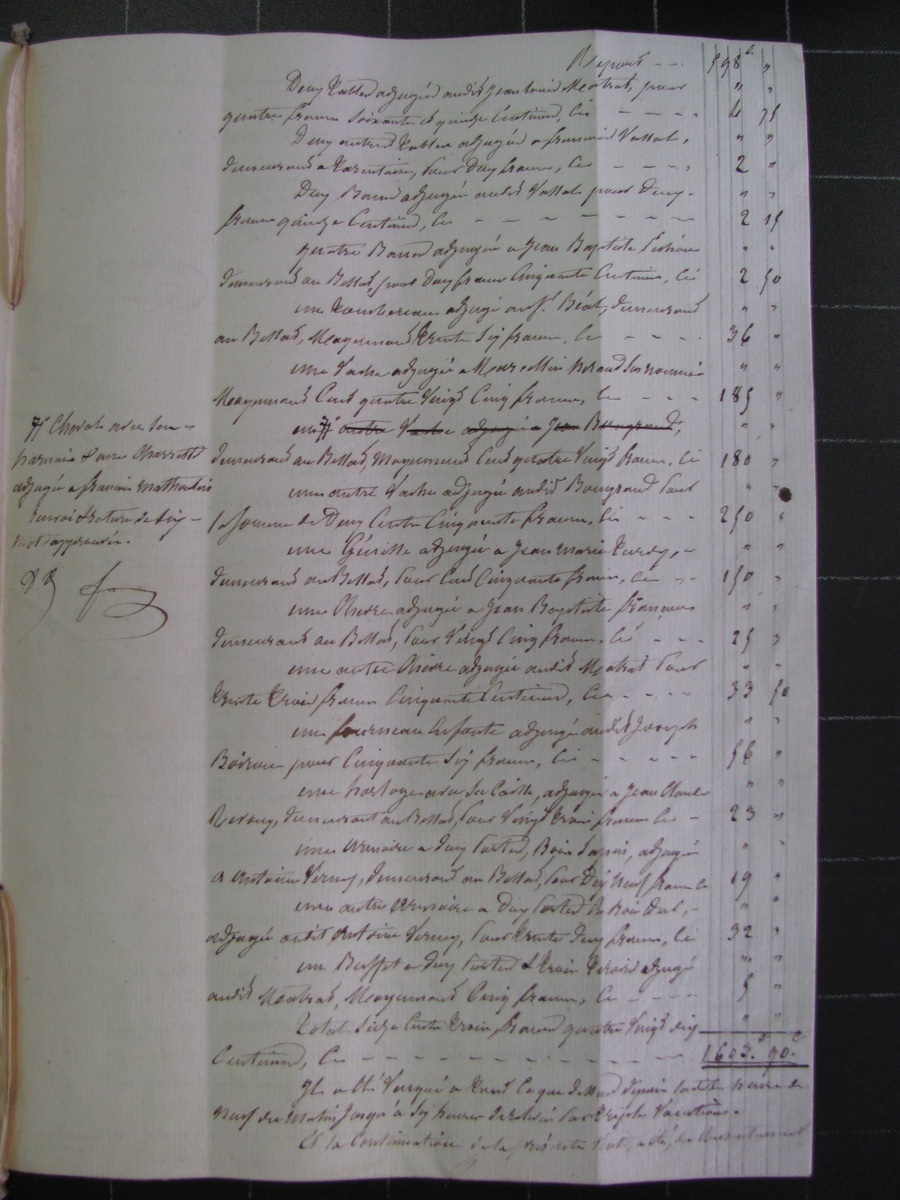 Report - - - 598 f "
Deux tables adjugées audit Jean Louis Mextral, pour " "
quatre francs soixante et quinze centimes, ci - - - - 4 75
Deux autres tables adjugées a francois Vallat, " "
demeurant a Tarentaise, pour Deux francs, ci - - - - 2 "
Deux Bancs adjugés audit Vallat pour Deux " "
francs quinze centimes, ci - - - - - - - 2 15
quatre Bancs adjugés a Jean Baptiste " "
demeurant au Bessat, pour Deux francs Cinquante Centimes, ci 2 50
un tombereau adjugé au Sr. Béal, demeurant " "
au Bessat, Moyennant trente Six francs, ci - - - - 36 "
une Vache adjugée a Marcellin surnommé " "
Moyennant Cent quatre Vingt Cinq francs, ci - - - 185 "
un # autre Vache adjugée a Jean " "
demeurant au Bessat, Moyennant Cent quatre Vingt francs, ci 180 "
une autre Vache adjugée audit pour " "
la somme de Deux Cents Cinquante francs, ci - - - 250 "
une Génisse adjugée a Jean Marie Tardy, " "
demeurant au Bessat, pour Cent Cinquante francs, ci - - 150 "
une Chèvre adjugée a Jean Baptiste " "
demeurant au Bessat, pour Vingt Cinq francs, ci - - - 25 "
une autre Chèvre adjugée audit pour " "
trente trois francs Cinquante Centimes, ci - - - - 33 50
un fourneau en fonte adjugé audit Joseph " "
pour Cinquante Six francs, ci - - - - - - 56 "
une horloge avec sa Caisse, adjugée a Jean Claude " "
demeurant au Bessat, pour Vingt trois francs ci - 23 "
une armoire a deux portes, Bois Sapin, adjugée " "
a Antoine Verney, demeurant au Bessat, pour Dix Neuf francs ci 19 "
une autre armoire a Deux portes " "
adjugée audit Antoine Verney, pour trente deux francs, ci 32 "
un Buffet a deux portes & trois tiroirs adjugé " "
audit Moyennant Cinq francs, ci - - - - 5 "
Total Seize Cents trois francs quatre Vingt dix " "
Centimes, ci - - - - - - - - - - 1603. f 90. c
Il a été Vaqué a tout ce que dessus depuis ladite heure de
neuf du Matin jusqu'à Six heures de relevée par triple Vacations.
Et la Continuation de la présente
# Cheval avec son -
harnais & une Charrette
adjugée a francois
renvoi & rature de six -
mots approuvés.